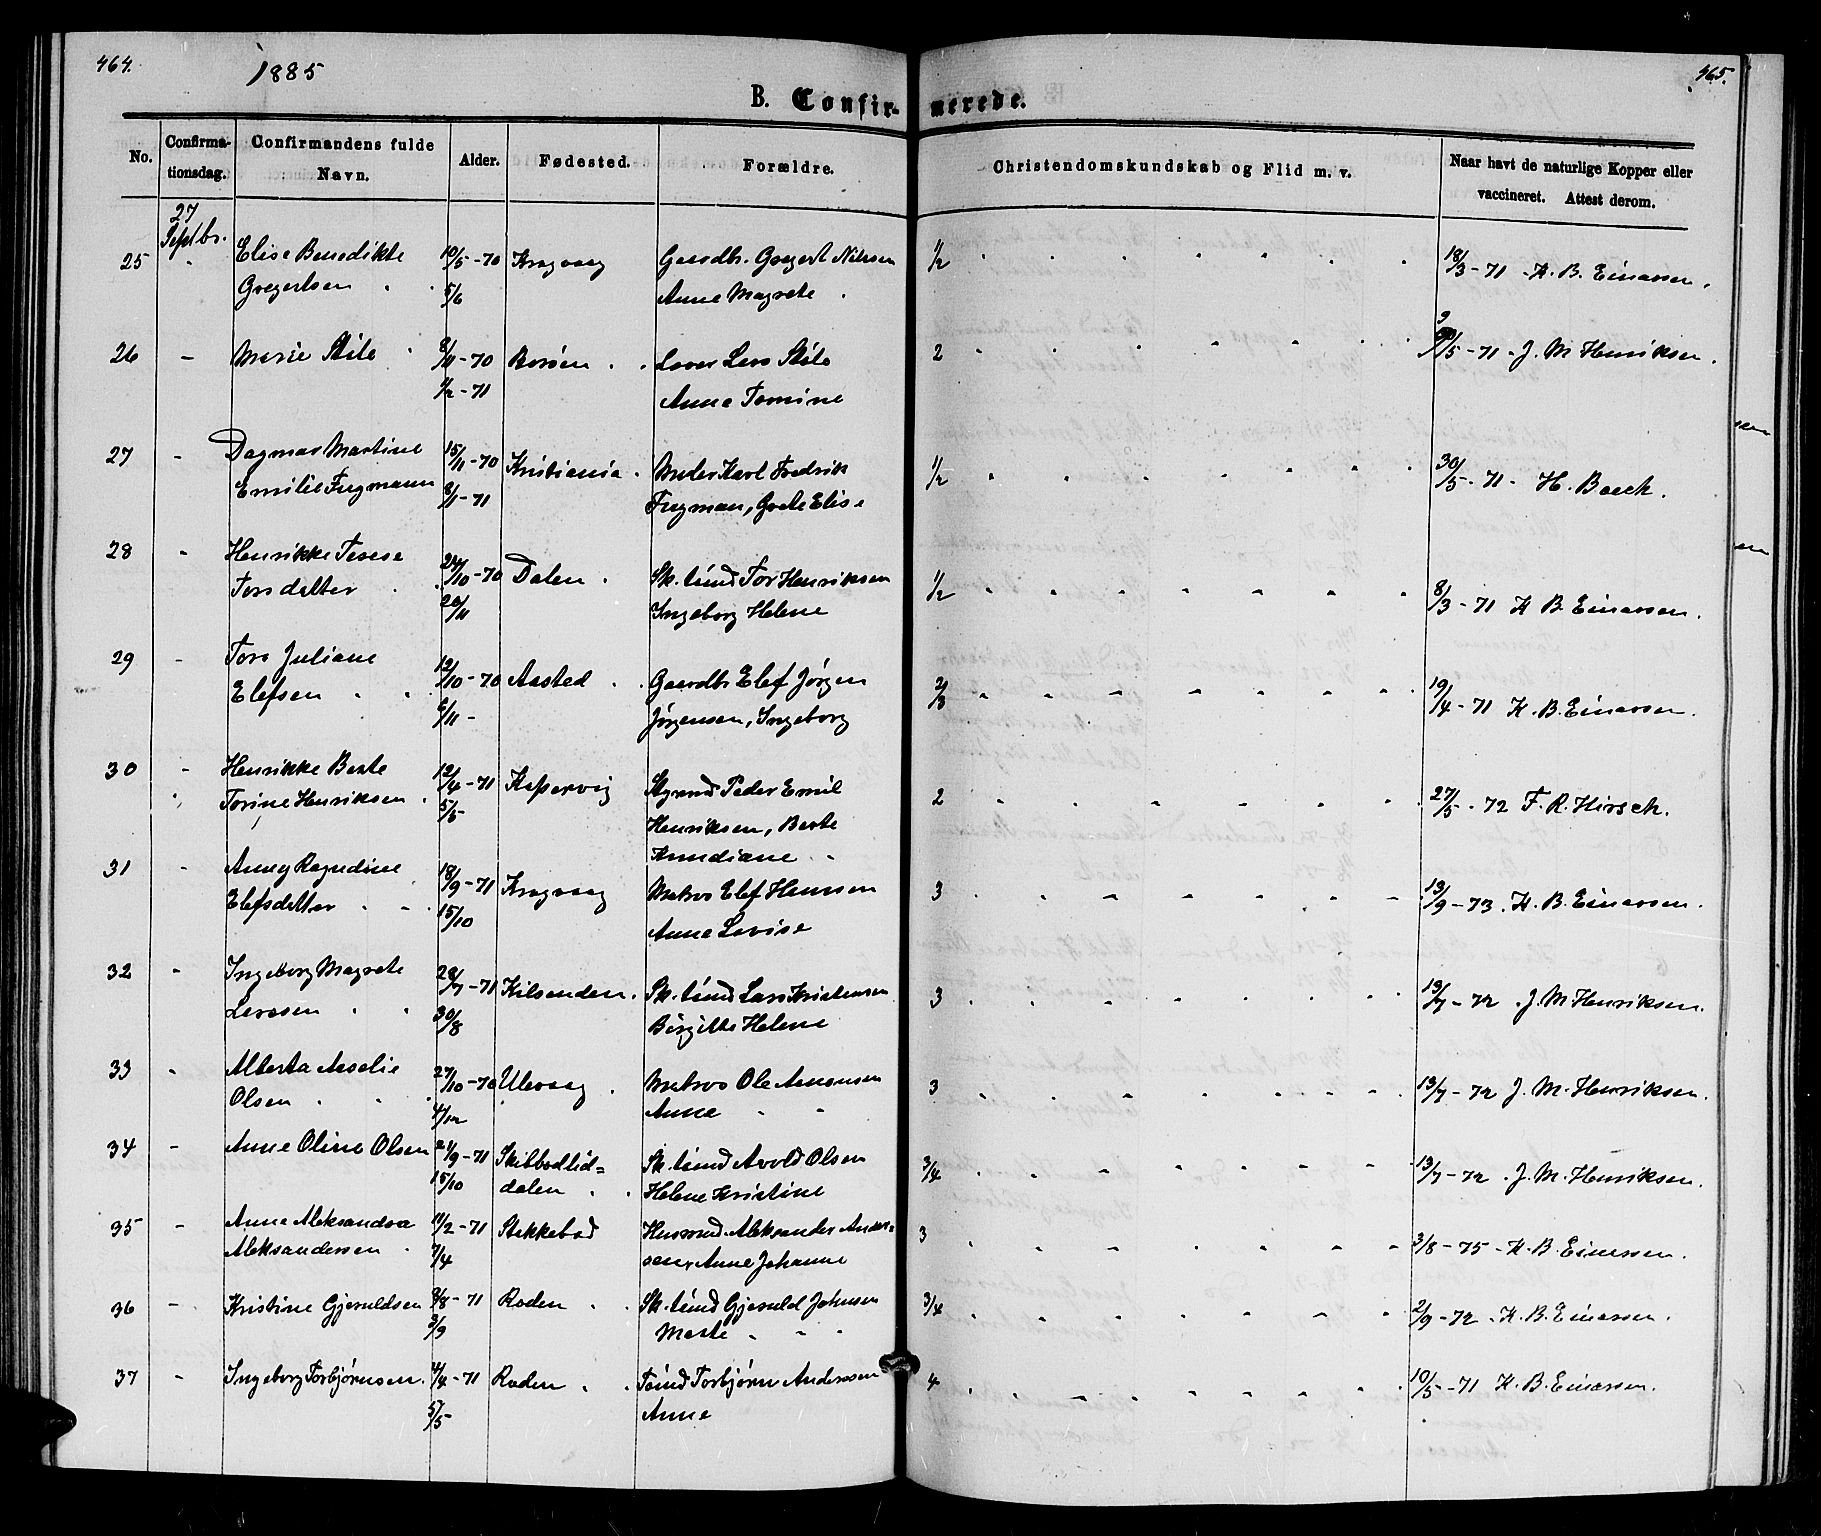 464.
1885
465.
B. Confir-merede.
No. Confirma-tionsdag. Confirmandens fulde Navn. Alder. Fødested. Forældre. Christendomskundskab og Flid m. v. Naar havt de naturlige Kopper eller vaccineret. Attest derom.
27
Septbr.
25 " Elise Benedikte 10/5-70 Kragvaag Gaardbr. Gregert Nilssen 1/2 18/3-71 - K. B. Einarsen.
Gregertsen 5/6 Anne Magrete
26 - Marie Stils 8/11-70 Borøen Lars Stils 2 /5-71 - J. M Henriksen.
1/2-71 Anne Tomine
27 - Dagmar Martine 15/11-70 Kristiania Karl Fredrik 1/2 30/5-71 - H. Boeck.
Emilie Fugmann 8/1-71 Fugman, Grete Elise
28 - Henrikke Terese 24/10-70 Dalen Sk. tømd Tor Henriksen 1/2 8/3-71 K B. Einarsen.
Torsdatter 20/11 Ingeborg Helene
29 - Tora Juliane 12/10-70 Aasted Gaardbr Elef Jørgen 2/3 19/4-71 K. B. Einarsen.
Elefsen 6/11 - Jørgensen, Ingeborg
30 - Henrikke Berte 12/4-71 Kaspervig Styrmd Peder Emil 2 27/5-72 F. R. Hirsch.
Torine Henriksen 5/5 Henriksen, Berte
Knudiane
31 - Anney Ragndine 18/9-71 Kragvaag Matros Elef Hansen 3 13/9-73. K. B. Einarsen.
Elefsdatter 15/10 Anne Lovise
32 - Ingeborg Magrete 28/7-71 Kilsanden. Sk. tømd Lars Kristensen 3 13/7-72. J. M Henriksen.
Larssen 30/8 Birgitte Helene
33 - Alberta Aaselie 27/10-70 Ulevaag Matros Ole Amonsen 3 13/7-72 J. M. Henriksen.
Olsen 4/12 Anne
34 - Anne Oline Olsen 21/9-71 Skibbodlid= Sk. tømd Avold Olsen 3/4 13/7-72. J. M. Henriksen.
15/10 dalen Helene Kristine
35 - Anne Aleksandra 11/2-71 Stakkebod Husmd Aleksander Ander= 3 3/8-75 - K. B. Einarsen.
Aleksandersen 7/4 sen, Anne Johanne
36 - Kristine Gjeruldsen 8/8-71 Roden Sk. tømd Gjeruld Johnsen 3/4 2/9-72. K. B. Einarsen.
3/9 Marte
37 - Ingeborg Torbjørnsen. 4/4-71 Roden Tømd Torbjørn Anderssen 4 10/5-71 K. B. Einarsen.
5/5 Anne